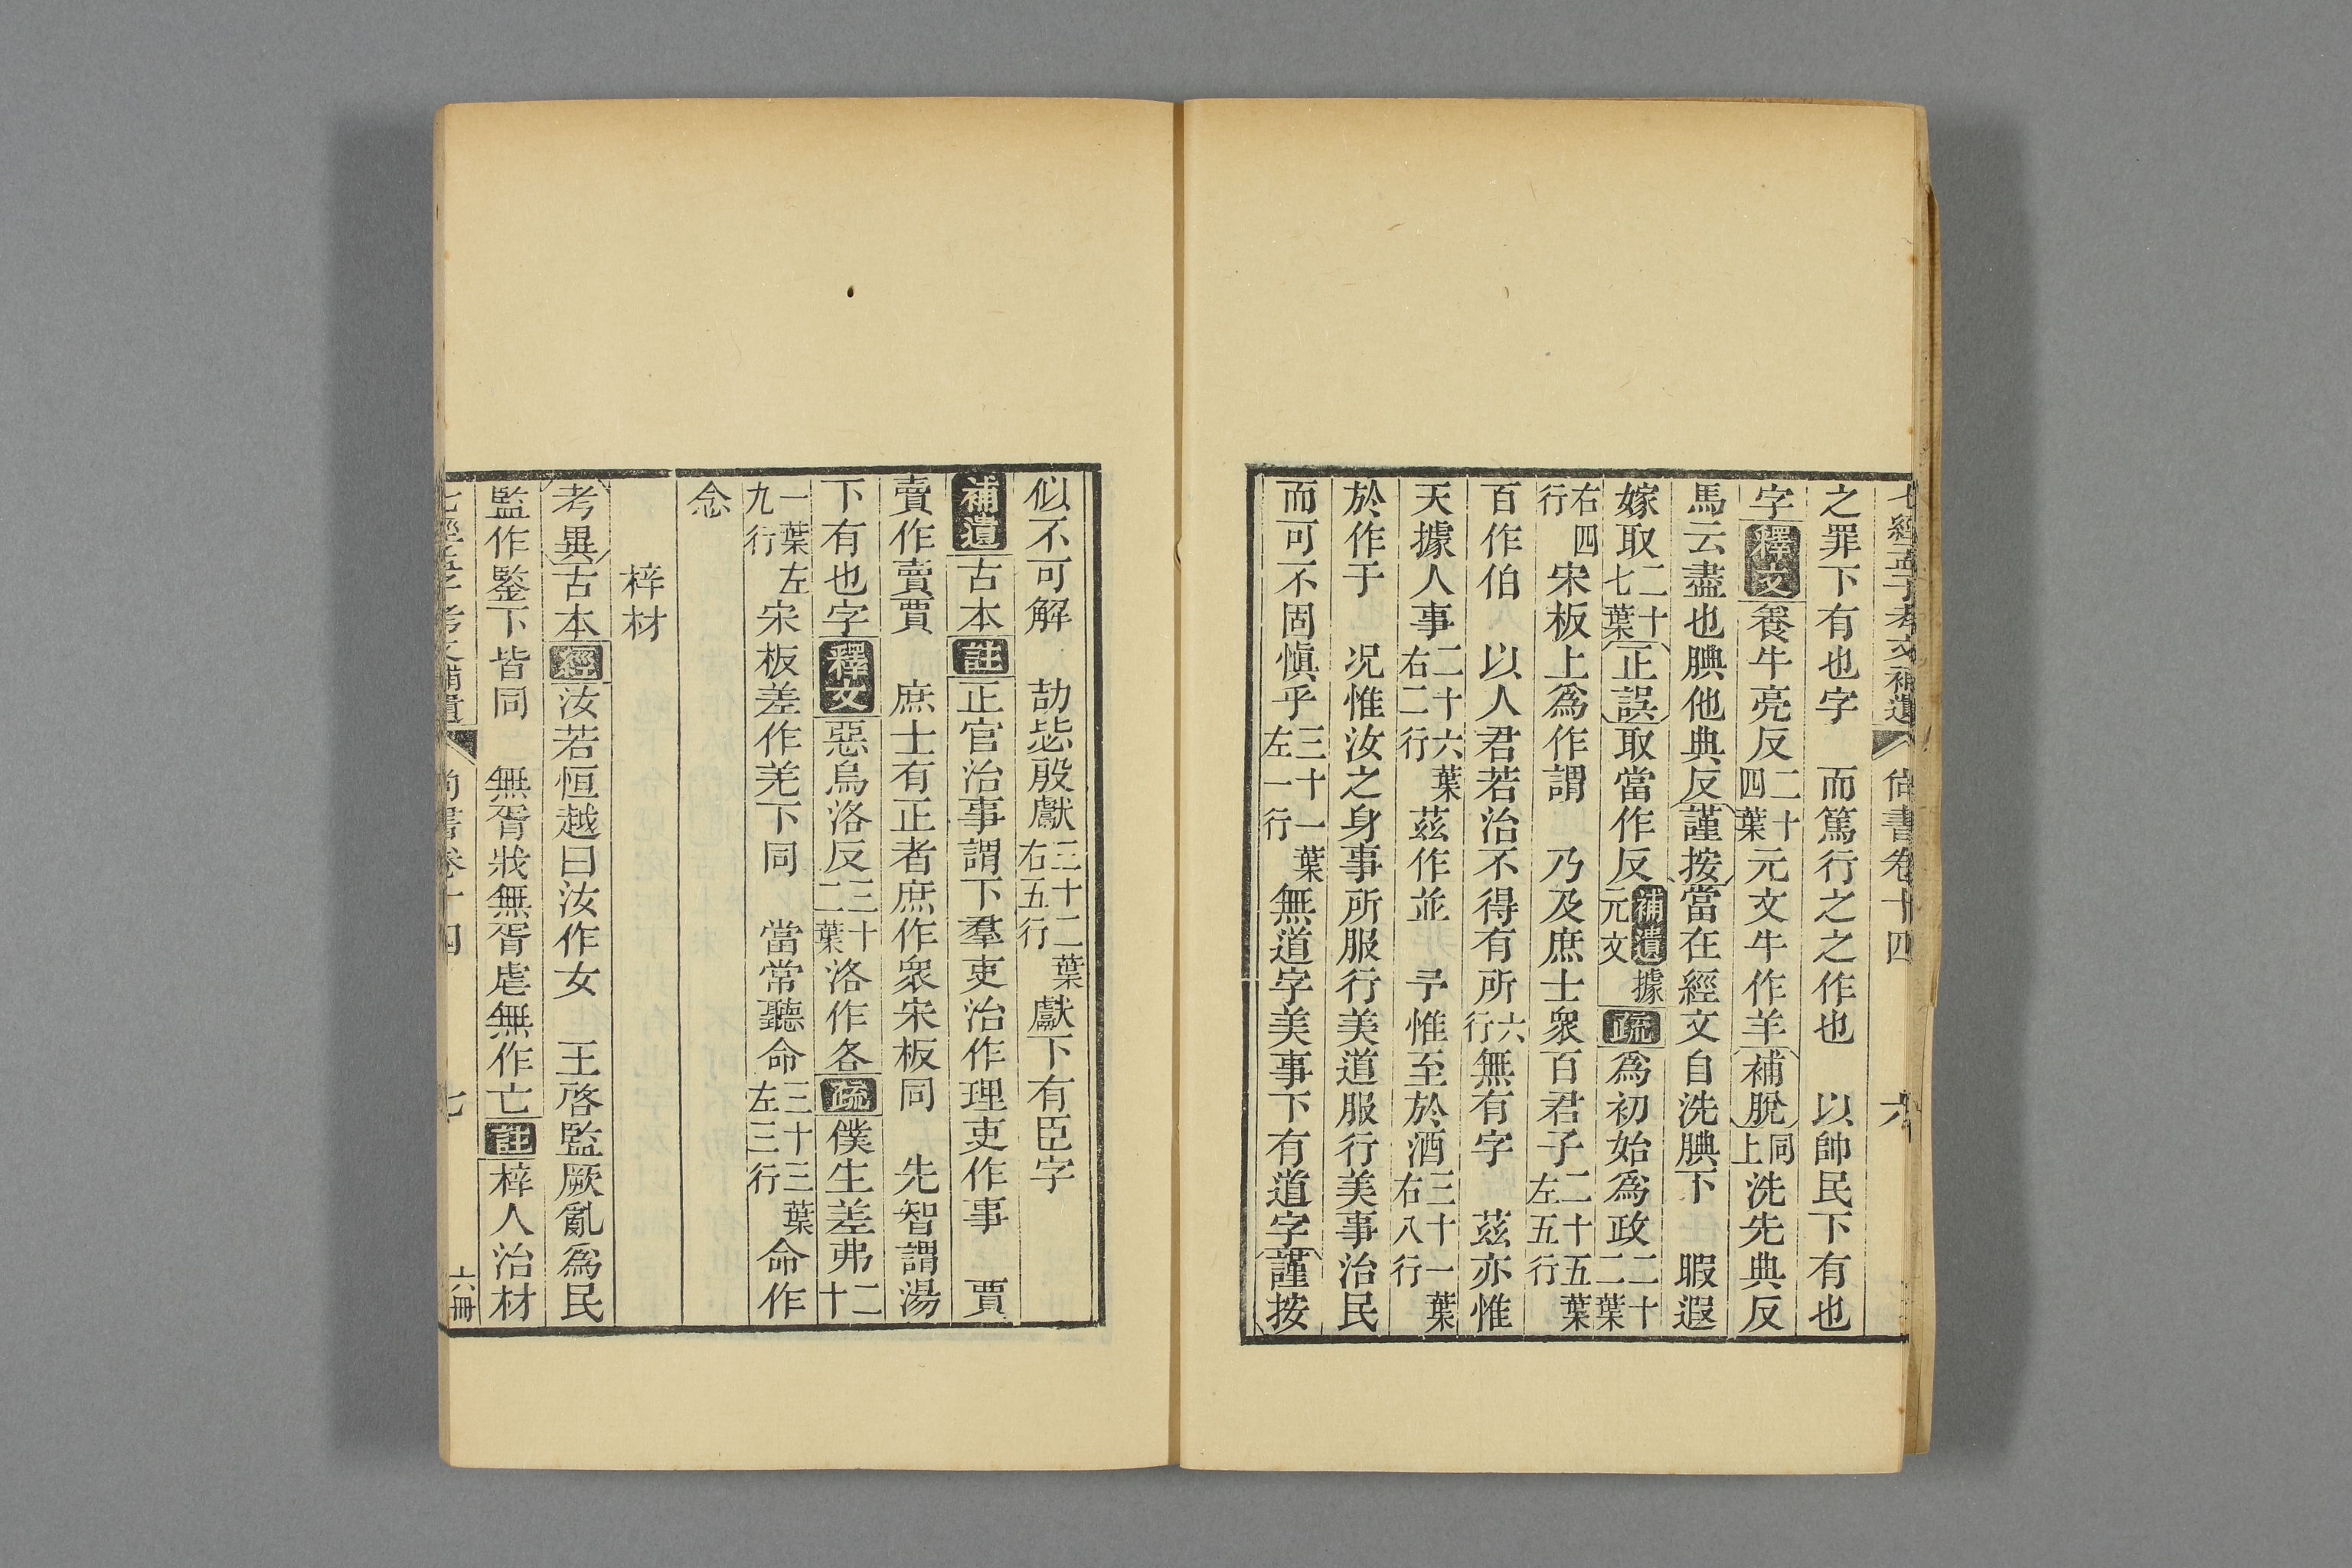 七經孟子考文補遺 尚書卷十四 六
之罪下有也字 而篤行之之作也 以帥民下有也
字釋文養牛亮反二十四葉元文牛作羊補脫同上洗先典反
馬云盡也腆他典反謹按當在經文自洗腆下 暇遐
嫁取二十七葉正誤取當作反補遺據元文疏為初始為政二十二葉
右四行宋板上為作謂 乃及庶士衆百君子二十五葉左五行
百作伯 以人君若治不得有所六行無有字 茲亦惟
天據人事二十六葉右二行茲作並 予惟至於酒三十一葉右八行
於作于 况惟汝之身事所服行美道服行美事治民
而可不固慎乎三十一葉左一行無道字美事下有道字謹按
似不可解 劼毖殷獻三十二葉右五行獻下有臣字
補遺古本註正官治事謂下羣吏治作理吏作事 賈
賣作賣賈 庶士有正者庶作衆宋板同 先智謂湯
下有也字釋文惡烏洛反三十二葉洛作各疏僕生差弗二十
一葉左九行宋板差作羌下同 當常聽命三十三葉左三行命作
念
梓材
考異古本經汝若恒越曰汝作女 王啓監厥亂為民
監作鑒下皆同 無胥戕無胥虐無作亡註梓人治材
七經孟子考文補遺 尚書卷十四 七 六冊